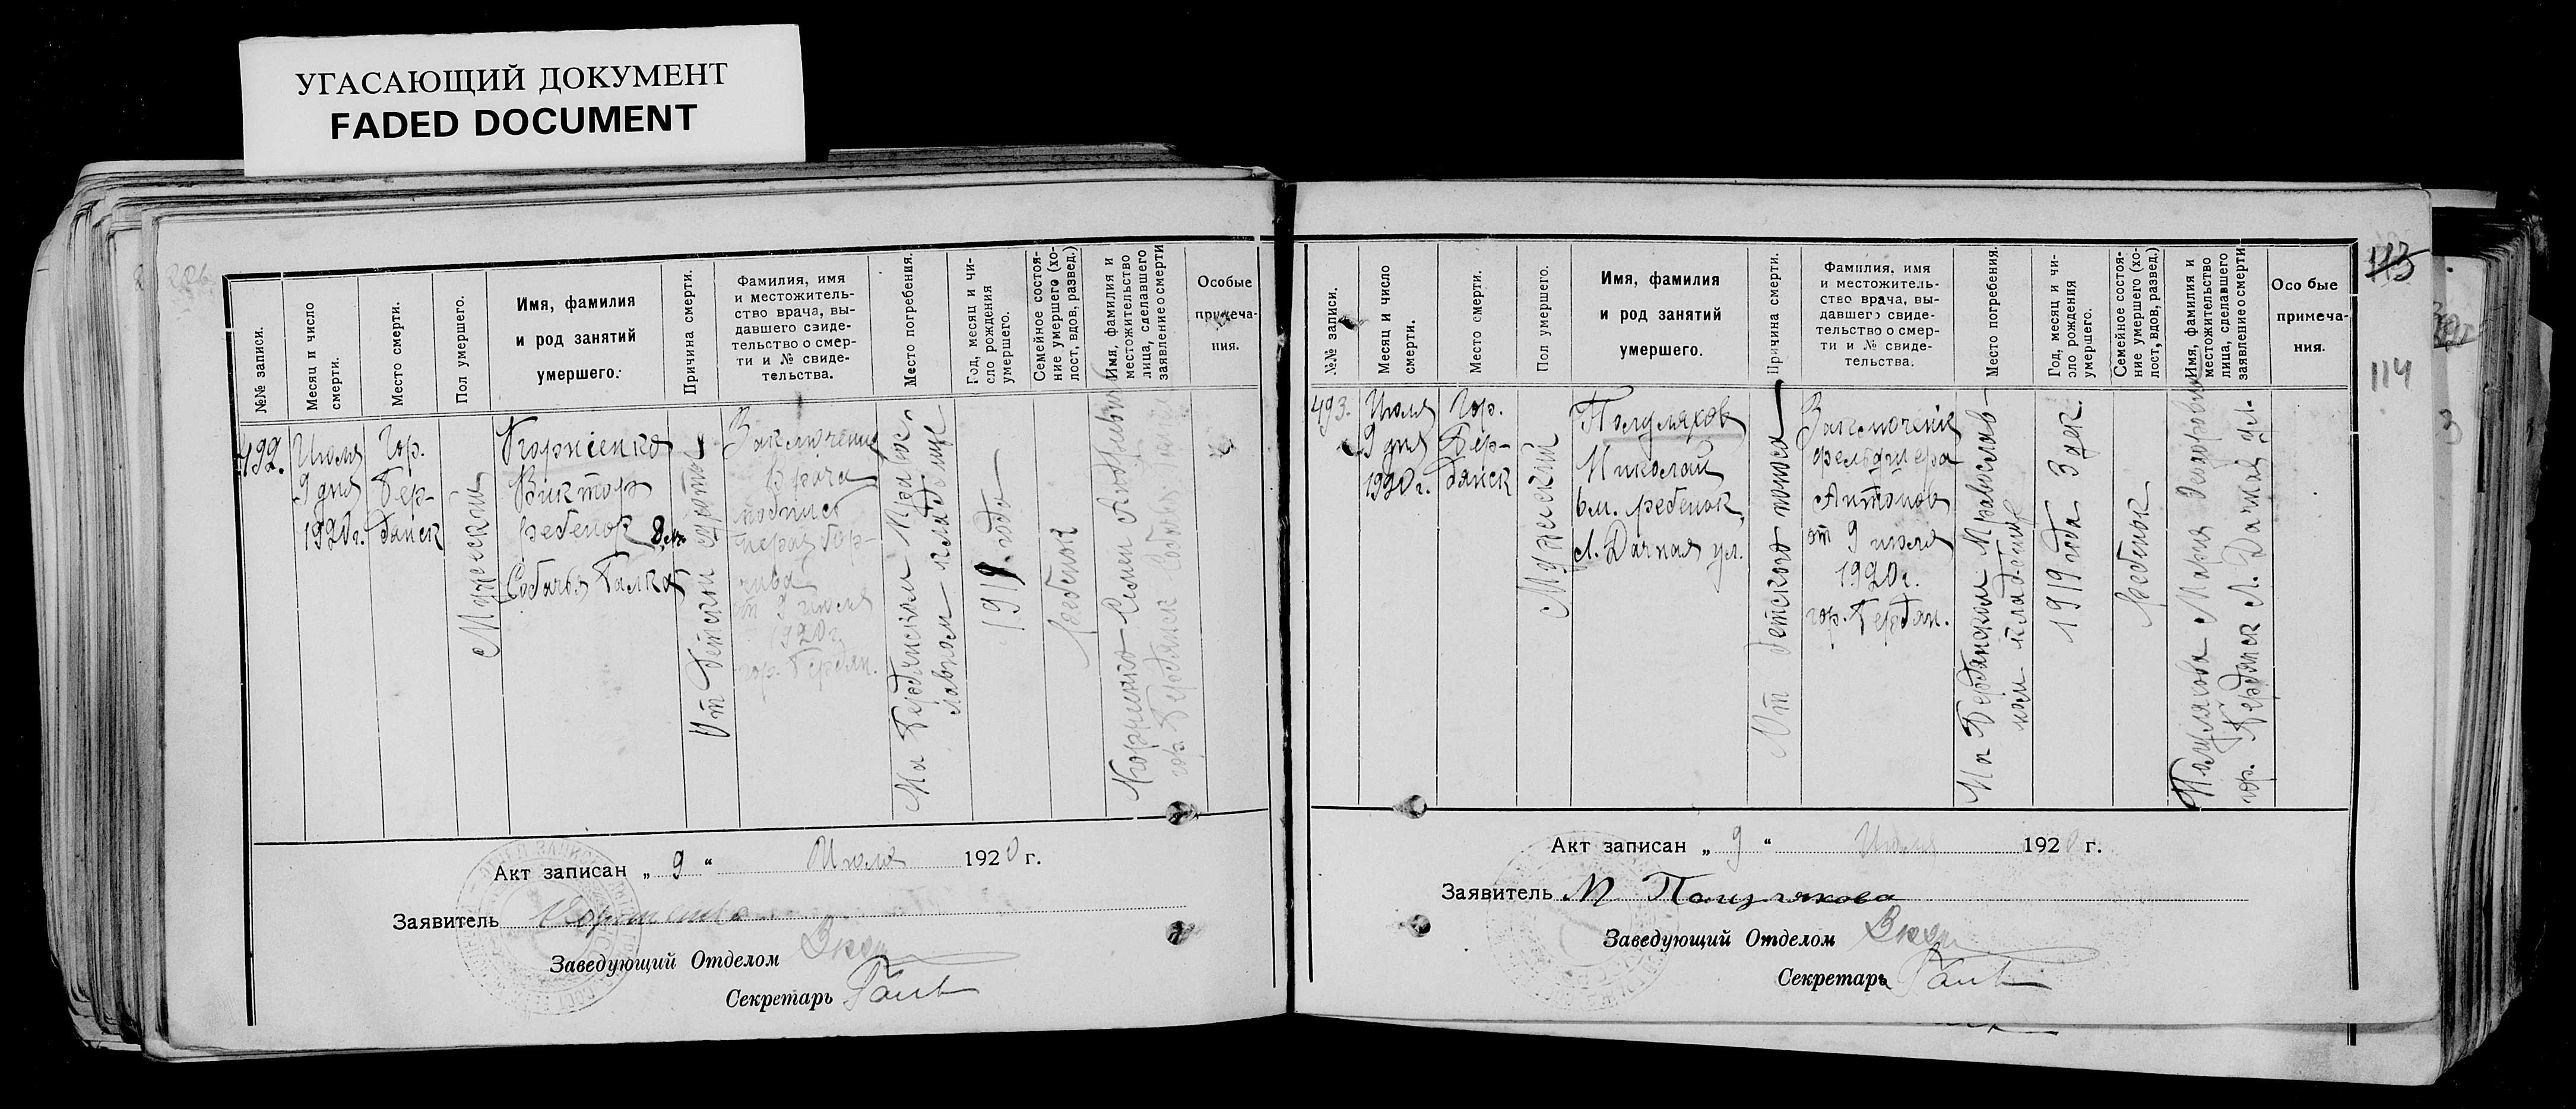 УГАСАЮЩИЙ ДОКУМЕНТ
FADED DOCUMENT
226.
№№ записи.
Месяц и число
смерти.
Место смерти.
Пол умершего.
Имя, фамилия
и род занятий
умершего.
Причина смерти.
Фамилия, имя
и местожитель-
ство врача, вы-
давшего свиде-
тельство о смер-
ти и № свиде-
тельства.
Место погребения.
Год, месяц и чи-
сло рождения
умершего.
Семейное состоя-
ние умершего (хо-
лост, вдов, развед.)
Имя, фамилия и
местожительство
лица, сделавшего
заявление о смерти
Особые
примеча-
ния.
492.
Июля
9 дня
1920г.
Гор.
Бер-
дянск
Мужеской
Корніенко
Виктор
ребенок
Собачья Балка
От детской
Заключение
Врача
подпись
нераз бор-
чива
от 9 июля
1920 г.
гор. Бердян.
На Бердянском Правос-
лавном кладбище
191 года
Ребенок
Корниенко Семен
гор. Бердянск Собачья Балка
Акт записан „ 9 “ Июля 1920 г.
Заявитель
Заведующий Отделом
Секретарь
№№ записи.
Месяц и число
смерти.
Место смерти.
Пол умершего.
Имя, фамилия
и род занятий
умершего.
Причина смерти.
Фамилия, имя
и местожитель-
ство врача, вы-
давшего свиде-
тельство о смер-
ти и № свиде-
тельства.
Место погребения.
Год, месяц и чи-
сло рождения
умершего.
Семейное состоя-
ние умершего (хо-
лост, вдов, развед.)
Имя, фамилия и
местожительство
лица, сделавшего
заявление о смерти
Особые
примеча-
ния.
493.
Июля
9 дня
1920 г.
Гор.
Бер-
дянск
Мужеский
Полуляхов
Николай
6 м. ребенок
Л. Дачная ул.
От детского поноса
Заключение
фельдшера
Антонов
от 9 июля
1920 г.
гор. Бердян.
На Бердянском Православ-
ном кладбище
1919 года 3 дек.
Ребенок
Полулякова Мария Федоровна
гор. Бердянск Л. Дачная ул.
Акт записан „ 9 “ Июля 1920 г.
Заявитель М Полулякова
Заведующий Отделом
Секретарь
113
114
3